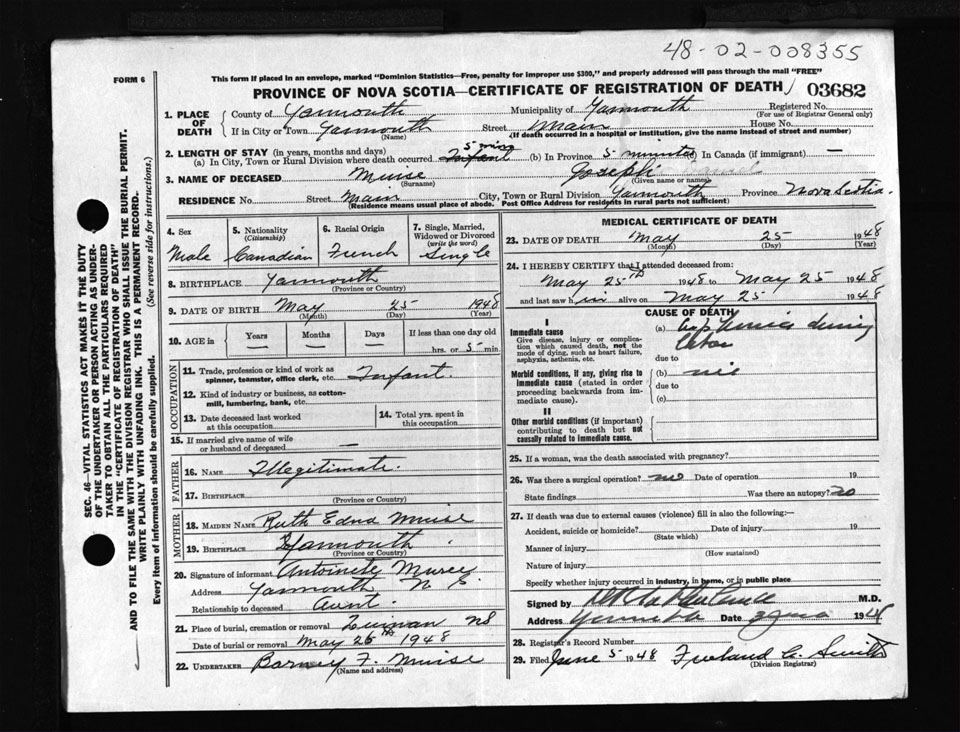 48-02-008355
FORM 6
This form if placed in an envelope, marked "Dominion Statistics—Free, penalty for improper use $300," and properly addressed will pass through the mail "FREE"
PROVINCE OF NOVA SCOTIA—CERTIFICATE OF REGISTRATION OF DEATH 03682
SEC. 46—VITAL STATISTICS ACT MAKES IT THE DUTY
OF THE UNDERTAKER OR PERSON ACTING AS UNDER-
TAKER TO OBTAIN ALL THE PARTICULARS REQUIRED
IN THE "CERTIFICATE OF REGISTRATION OF DEATH"
AND TO FILE THE SAME WITH THE DIVISION REGISTRAR WHO SHALL ISSUE THE BURIAL PERMIT.
WRITE PLAINLY WITH UNFADING INK. THIS IS A PERMANENT RECORD.
Every item of information should be carefully supplied. (See reverse side for instructions.)
1. PLACE OF DEATH
County of Yarmouth Municipality of Yarmouth Registered No.
(For use of Registrar General only)
If in City or Town Yarmouth Street Main House No.
(Name) (If death occurred in a hospital or institution, give the name instead of street and number)
2. LENGTH OF STAY (in years, months and days) 5 mins
(a) In City, Town or Rural Division where death occurred Infant (b) In Province 5 minutes (c) In Canada (if immigrant) —
3. NAME OF DECEASED Muise Joseph
(Surname) (Given name or names)
RESIDENCE No. Street Main City, Town or Rural Division Yarmouth Province Nova Scotia.
(Residence means usual place of abode. Post Office Address for residents in rural parts not sufficient)
4. Sex
Male
5. Nationality
(Citizenship)
Canadian
6. Racial Origin
French
7. Single, Married,
Widowed or Divorced
(write the word)
Single
8. BIRTHPLACE Yarmouth
(Province or Country)
9. DATE OF BIRTH May 25 1948
(Month) (Day) (Year)
10. AGE in Years Months Days If less than one day old
hrs. or 5 min.
OCCUPATION
11. Trade, profession or kind of work as
spinner, teamster, office clerk, etc. Infant.
12. Kind of industry or business, as cotton-
mill, lumbering, bank, etc.
13. Date deceased last worked
at this occupation
14. Total yrs. spent in
this occupation
15. If married give name of wife
or husband of deceased —
FATHER
16. NAME Illegitimate.
17. BIRTHPLACE
(Province or Country)
MOTHER
18. MAIDEN NAME Ruth Edna Muise
19. BIRTHPLACE Yarmouth
(Province or Country)
20. Signature of informant Antoinete
Address Yarmouth N S
Relationship to deceased Aunt.
21. Place of burial, cremation or removal NS
Date of burial or removal May 26th 1948
22. UNDERTAKER Barney F. Muise
(Name and address)
MEDICAL CERTIFICATE OF DEATH
23. DATE OF DEATH May 25 1948
(Month) (Day) (Year)
24. I HEREBY CERTIFY that I attended deceased from:
May 25th 1948 to May 25 1948
and last saw him alive on May 25 1948
CAUSE OF DEATH
I
Immediate cause
Give disease, injury or complica-
tion which caused death, not the
mode of dying, such as heart failure,
asphyxia, asthenia, etc.
(a) during
due to
Morbid conditions, if any, giving rise to
immediate cause (stated in order
proceeding backwards from im-
mediate cause).
(b) nil
due to
(c)
II
Other morbid conditions (if important)
contributing to death but not
causally related to immediate cause.
25. If a woman, was the death associated with pregnancy?
26. Was there a surgical operation? no Date of operation 19
State findings Was there an autopsy? no
27. If death was due to external causes (violence) fill in also the following:—
Accident, suicide or homicide? Date of injury 19
(State which)
Manner of injury
(How sustained)
Nature of injury
Specify whether injury occurred in industry, in home, or in public place
Signed by M.D.
Address Date 1948
28. Registrar's Record Number
29. Filed June 5 1948 Freeland G. Smith
(Division Registrar)